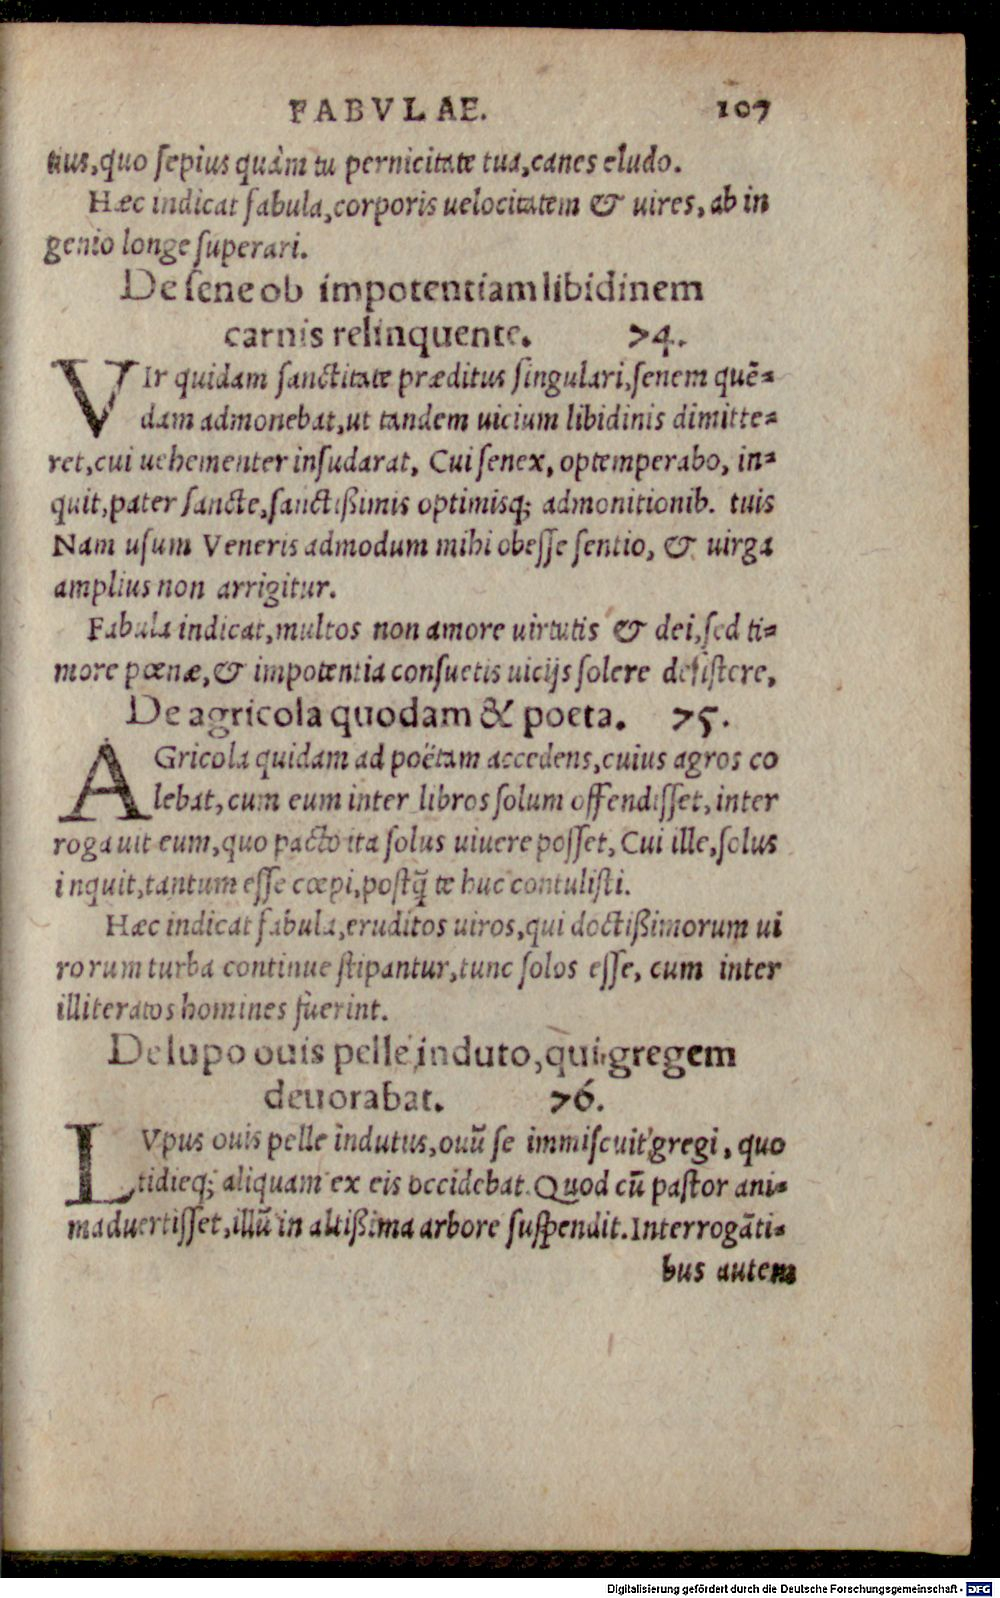 FABVLAE. 107
tius,quo sepius quàm tu pernicitate tua,canes eludo.
Hæc indicat fabula,corporis uelocitatem & uires, ab in
genio longe superari.
De sene ob impotentiam libidinem
carnis relinquente. 74.
VIr quidam sanctitate præditus singulari,senem quē=
dam admonebat,ut tandem uicium libidinis dimitte=
ret,cui uehementer insudarat, Cui senex, optemperabo, in=
quit,pater sancte,sanctißimis optimisq; admonitionib. tuis
Nam usum Veneris admodum mihi obesse sentio, & uirga
amplius non arrigitur.
Fabula indicat,multos non amore uirtutis & dei,sed ti=
more pœnæ,& impotentia consuetis uicijs solere desistere,
De agricola quodam & poeta. 75.
AGricola quidam ad poëtam accedens,cuius agros co
lebat,cum eum inter libros solum offendisset, inter
rogauit eum,quo pacto ita solus uiuere posset, Cui ille,solus
inquit,tantum esse cœpi,postq̃ te huc contulisti.
Hæc indicat fabula,eruditos uiros,qui doctißimorum ui
rorum turba continue stipantur,tunc solos esse, cum inter
illiteratos homines fuerint.
De lupo ouis pelle induto,qui gregem
deuorabat. 76.
LVpus ouis pelle indutus,ouū se immiscuit gregi, quo
tidieq; aliquam ex eis occidebat. Quod cū pastor ani=
maduertisset,illū in altißima arbore suspendit. Interrogāti=
bus autem
Digitalisierung gefördert durch die Deutsche Forschungsgemeinschaft - DFG